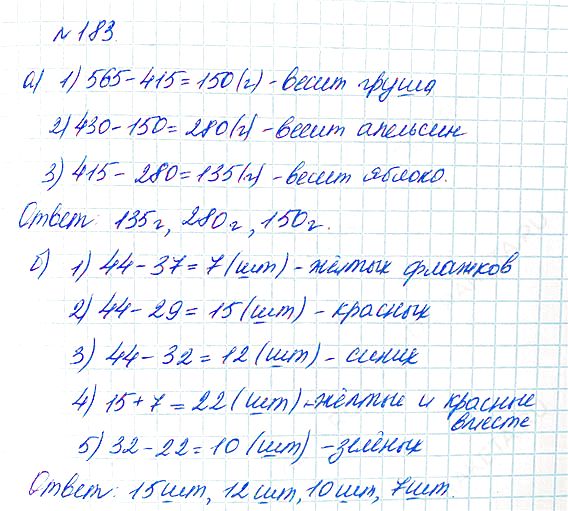 № 183.
а) 1) 565 - 415 = 150 (г) - весит груша
2) 430 - 150 = 280 (г) - весит апельсин
3) 415 - 280 = 135 (г) - весит яблоко.
Ответ: 135 г, 280 г, 150 г.
б) 1) 44 - 37 = 7 (шт) - жёлтых флажков
2) 44 - 29 = 15 (шт) - красных
3) 44 - 32 = 12 (шт) - синих
4) 15 + 7 = 22 (шт) - жёлтые и красные
вместе
5) 32 - 22 = 10 (шт) - зелёных
Ответ: 15 шт, 12 шт, 10 шт, 7 шт.